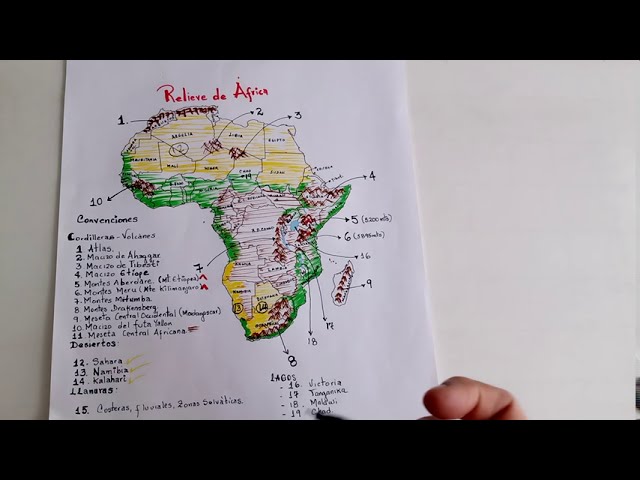 Relieve de África
1.
2
3
4
5 (5200 mts)
6 (5895 mts)
16
9
17
18
8
7
10
ARGELIA
LIBIA
EGIPTO
MAURITANIA
MALI
NIGER
CHAD
SUDAN
NIGERIA
ANGOLA
ZAMBIA
NAMIBIA
BOTSWANA
12
13
14
19
Convenciones
Cordilleras - Volcánes
1 Atlas.
2 Macizo de Ahaggar
3 Macizo de Tibesti
4 Macizo Etíope
5 Montes Aberdare.
6 Montes Meru (Mte Kilimanjaro)
7 Montes Mitumba.
8 Montes Drakensberg.
9 Meseta Central Occidental (Madagascar)
10 Macizo del futa Yallon
11 Meseta Central Africana.
Desiertos:
12. Sahara
13. Namibia
14. Kalahari
LLanuras:
15. Costeras, fluviales, Zonas Selváticas.
LAGOS
- 16. Victoria
- 17 Tanganika
- 18.
- 19 Chad.